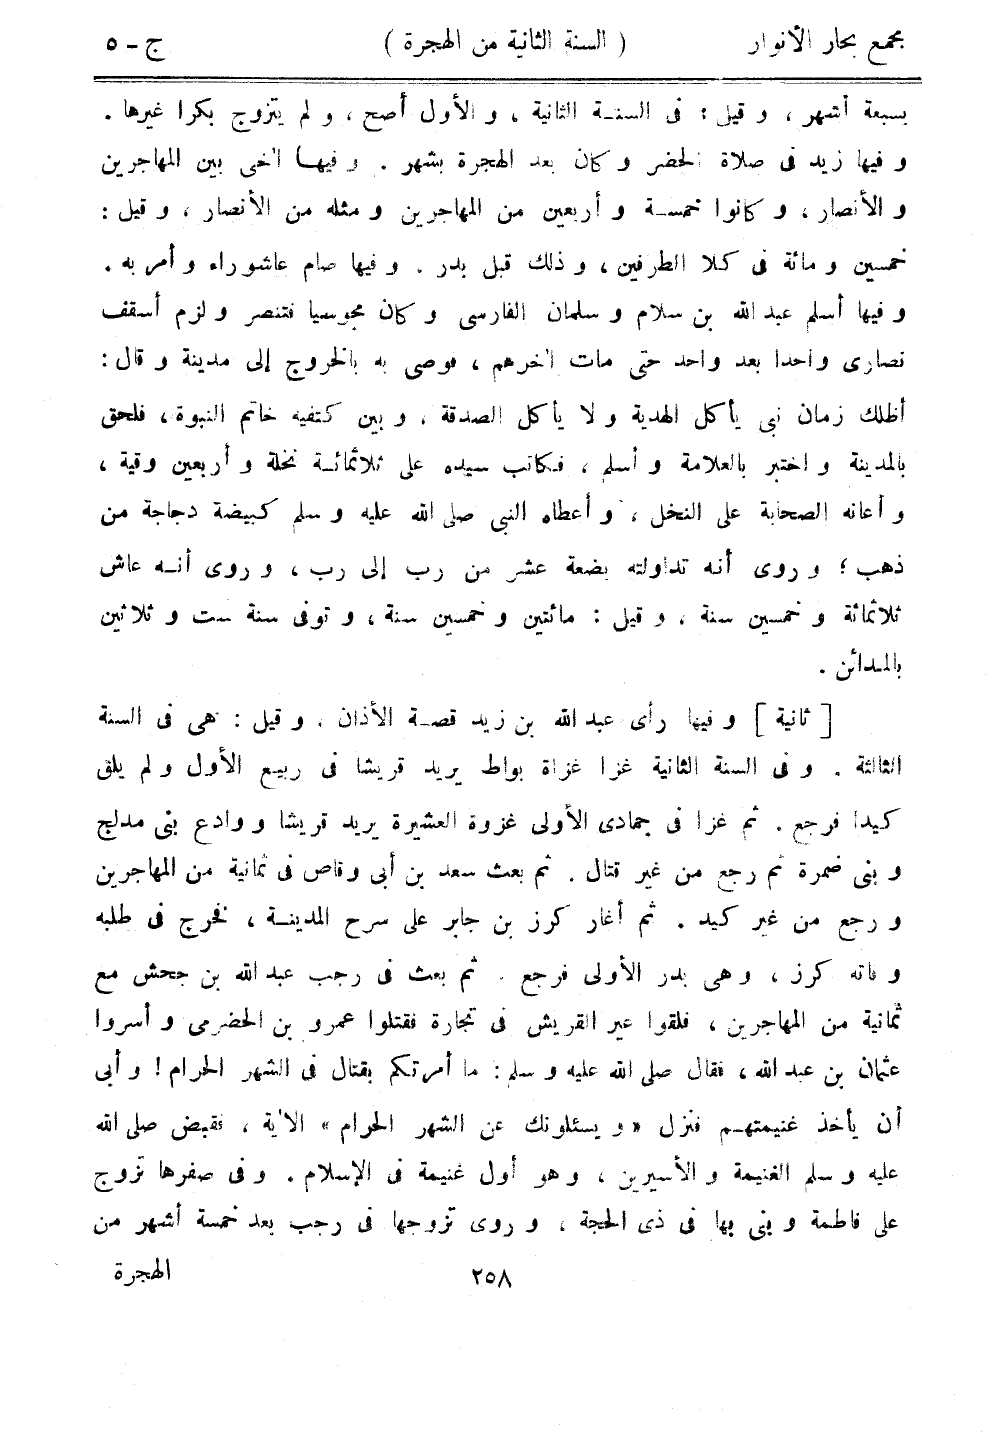 مجمع بحار الأنوار ( السنة الثانية من الهجرة ) ج - ٥
بسبعة أشهر ، و قيل : فى السنة الثانية ، و الأول أصح ، و لم يتزوج بكرا غيرها .
و فيها زيد فى صلاة الحضر و كان بعد الهجرة بشهر . و فيها اٰخى بين المهاجرين
و الأنصار ، و كانوا خمسة و أربعين من المهاجرين و مثله من الأنصار ، و قيل :
خمسين و مائة فى كلا الطرفين ، و ذلك قبل بدر . و فيها صام عاشوراء و أمر به .
و فيها أسلم عبد الله بن سلام و سلمان الفارسى و كان مجوسيا فتنصر و لزم أسقف
نصارى واحدا بعد واحد حتى مات اٰخرهم ، فوصى به بالخروج إلى مدينة و قال :
أظلك زمان نبى يأكل الهدية و لا يأكل الصدقة ، و بين كتفيه خاتم النبوة ، فلحق
بالمدينة و اختبر بالعلامة و أسلم ، فكاتب سيده على ثلاثمائة نخلة و أربعين وقية ،
و أعانه الصحابة على النخل ، و أعطاه النبى صلى الله عليه و سلم كبيضة دجاجة من
ذهب ؛ و روى أنه تداولته بضعة عشر من رب إلى رب ، و روى أنه عاش
ثلاثمائة و خمسين سنة ، و قيل : مائتين و خمسين سنة ، و توفى سنة ست و ثلاثين
بالمدائن .
[ ثانية ] و فيها رأى عبد الله بن زيد قصة الأذان . و قيل : هى فى السنة
الثالثة . و فى السنة الثانية غزا غزاة بواط يريد قريشا فى ربيع الأول و لم يلق
كيدا فرجع . ثم غزا فى جمادى الأولى غزوة العشيرة يريد قريشا و وادع بنى مدلج
و بنى ضمرة ثم رجع من غير قتال . ثم بعث سعد بن أبى وقاص فى ثمانية من المهاجرين
و رجع من غير كيد . ثم أغار كرز بن جابر على سرح المدينة ، فخرج فى طلبه
و فاته كرز ، و هى بدر الأولى فرجع . ثم بعث فى رجب عبد الله بن جحش مع
ثمانية من المهاجرين ، فلقوا عير القريش فى تجارة فقتلوا عمرو بن الحضرمى و أسروا
عثمان بن عبد الله ، فقال صلى الله عليه و سلم : ما أمرتكم بقتال فى الشهر الحرام ! و أبى
أن يأخذ غنيمتهم فنزل « و يسئلونك عن الشهر الحرام » الاٰية ، فقبض صلى الله
عليه و سلم الغنيمة و الأسيرين ، و هو أول غنيمة فى الإسلام . و فى صفرها تزوج
على فاطمة و بنى بها فى ذى الحجة ، و روى تزوجها فى رجب بعد خمسة أشهر من
٢٥٨ الهجرة